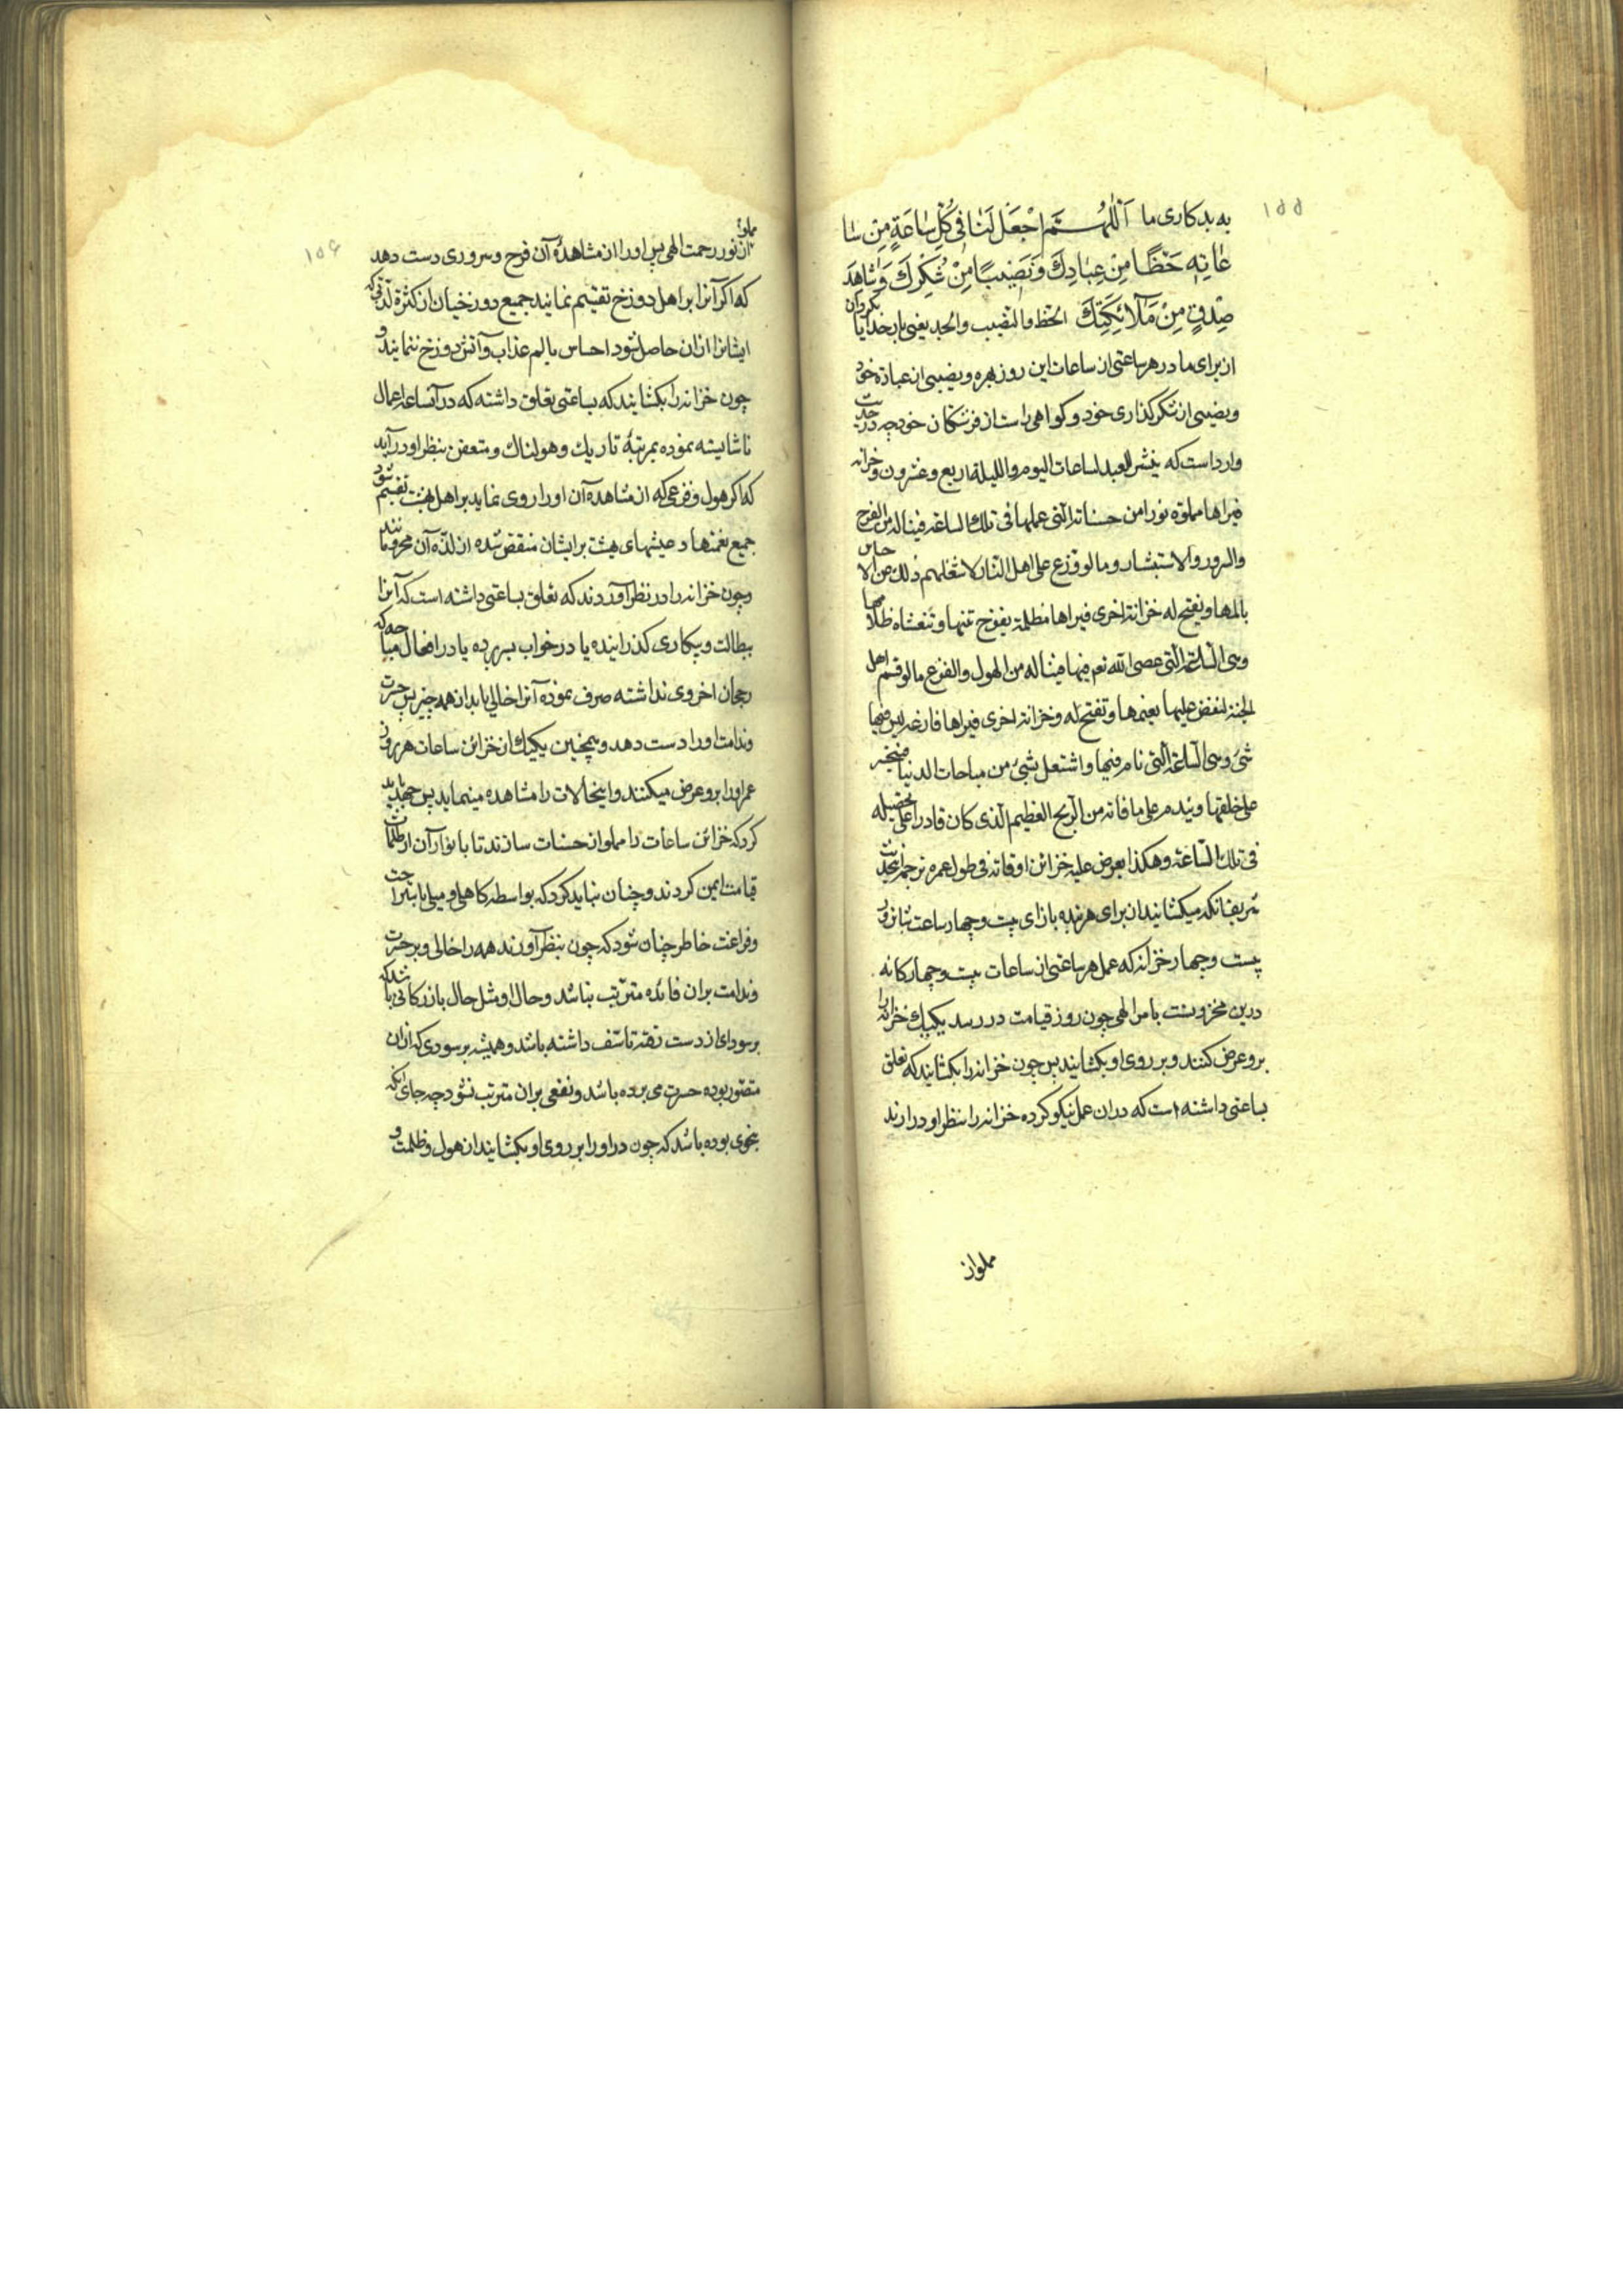 ۱۵۵
به بدکاری ما اَللّٰهُمَّ اجْعَلْ لَنٰا فی کُلِّ سٰاعَةٍ مِنْ سٰا
عٰاتِهِ حَظًّا مِنْ عِبٰادِكَ وَنَصیٖبًا مِنْ شُکْرِكَ وَشٰاهِدَ
صِدْقٍ مِنْ مَلٰآئِکَتِكَ الحظ والنصیب والجد یعنی بار خدایا بکردان
از برای ما در هر ساعتی از ساعات این روز بهره ونصیبی از عبادة خود
ونصیبی از شکر کذاری خود وکواهی راست از فرشتکان خود چه در حدیث
وارد است که ینشر للعبد لساعات الیوم واللیلة اربع وعشرون خزانه
فیراها مملوّه نورا من حسناته التی عملها فی تلك الساعة فیناله من الفرح
والسرور والاستبشار ومالو وزع علی اهل النار لاشغلهم ذلك عن الاحساس
بالمها ویفتح له خزانة اخری فیراها مظلمة یفوح نتنها وتغشاه ظلامها
وهی الساعة التی عصی الله نعم فیها فیناله من الهول والفزع مالو قسم اهل
الجنة لنغض علیها نعیمها وتفتح له وخزانة اخری فیراها فارغه لیس فیها
شیء وهی الساعة التی نام فیها واشتغل بشیء من مباحات الدنیا فیتحیر
علی خلقتها ویندم علی ما فاته من الربح العظیم الذی کان قادرا علی تحصیله
فی تلك الساعة وهکذا یعرض علیه خزائن اوقاته فی طول عمره ترجمه اینحدیث
شریف آنکه میکشایند از برای هر بنده بازای بیست وچهار ساعت شبانروز
بیست وچهار خزانه که عمل هر ساعتی از ساعات بیست وچهارکانه
درین مخزونست بامر الهی چون روز قیامت در رسد یکیك خزانه را
برو عرض کنند وبر روی او بکشایند پس چون خزانه را بکشایند که تعلق
بساعتی داشته است که دران عمل نیکو کرده خزانه را بنظر او درارند
مملو از
۱۵۶
مملو
از نور رحمت الهی پس او را از مشاهدهٔ آن فرح وسروری دست دهد
که اکر آنرا بر اهل دوزخ تقسیم نمایند جمیع دوزخیان از کثرة لذتی که
ایشانرا ازان حاصل شود احساس بالم عذاب وآتش دوزخ ننمایند و
چون خزانه را بکشایند که بساعتی تعلق داشته که در آنساعة اعمال
ناشایسته نموده بمرتبهٔ تاریك وهولناك ومتعفن بنظر او درآید
که اکر هول وفزعی که از مشاهده آن او را روی نماید بر اهل بهشت تقسیم شود
جمیع نعمتها وعیشهای بهشت بر ایشان منقص شده از لذة آن محروم مانند
وچون خزانه را در نظر آورند که تعلق بساعتی داشته است که آنرا
ببطالت وبیکاری کذرانیده یا در خواب بسر برده یا در افعال مباحه که
رجحان اخروی نداشته صرف نموده آنرا خالی یابد از همه چیز پس حسرت
وندامت او را دست دهد وهمچنین یکیك از خزائن ساعات هر روز
عمر او را برو عرض میکنند واینحالات را مشاهده مینماید پس جهد باید
کرد که خزائن ساعات را مملو از حسنات سازند تا بانوار آن از ظلمات
قیامت ایمن کردند وچنان نباید کرد که بواسطه کاهلی ومیل باستراحت
وفراغت خاطر چنان شود که چون بنظر آورند همه را خالی وبر حسرت
وندامت بران فائده مترتب نباشد وحال او مثل حال بازرکانی باشد که
بر سودای از دست رفته تاسف داشته باشد وهمیشه بر سودی که ازان
متصور بوده حسرت می برده باشد ونفعی بران مترتب نشود چه جای آنکه
بنحوی بوده باشد که چون در او را بر روی او بکشایند از هول وظلمت و